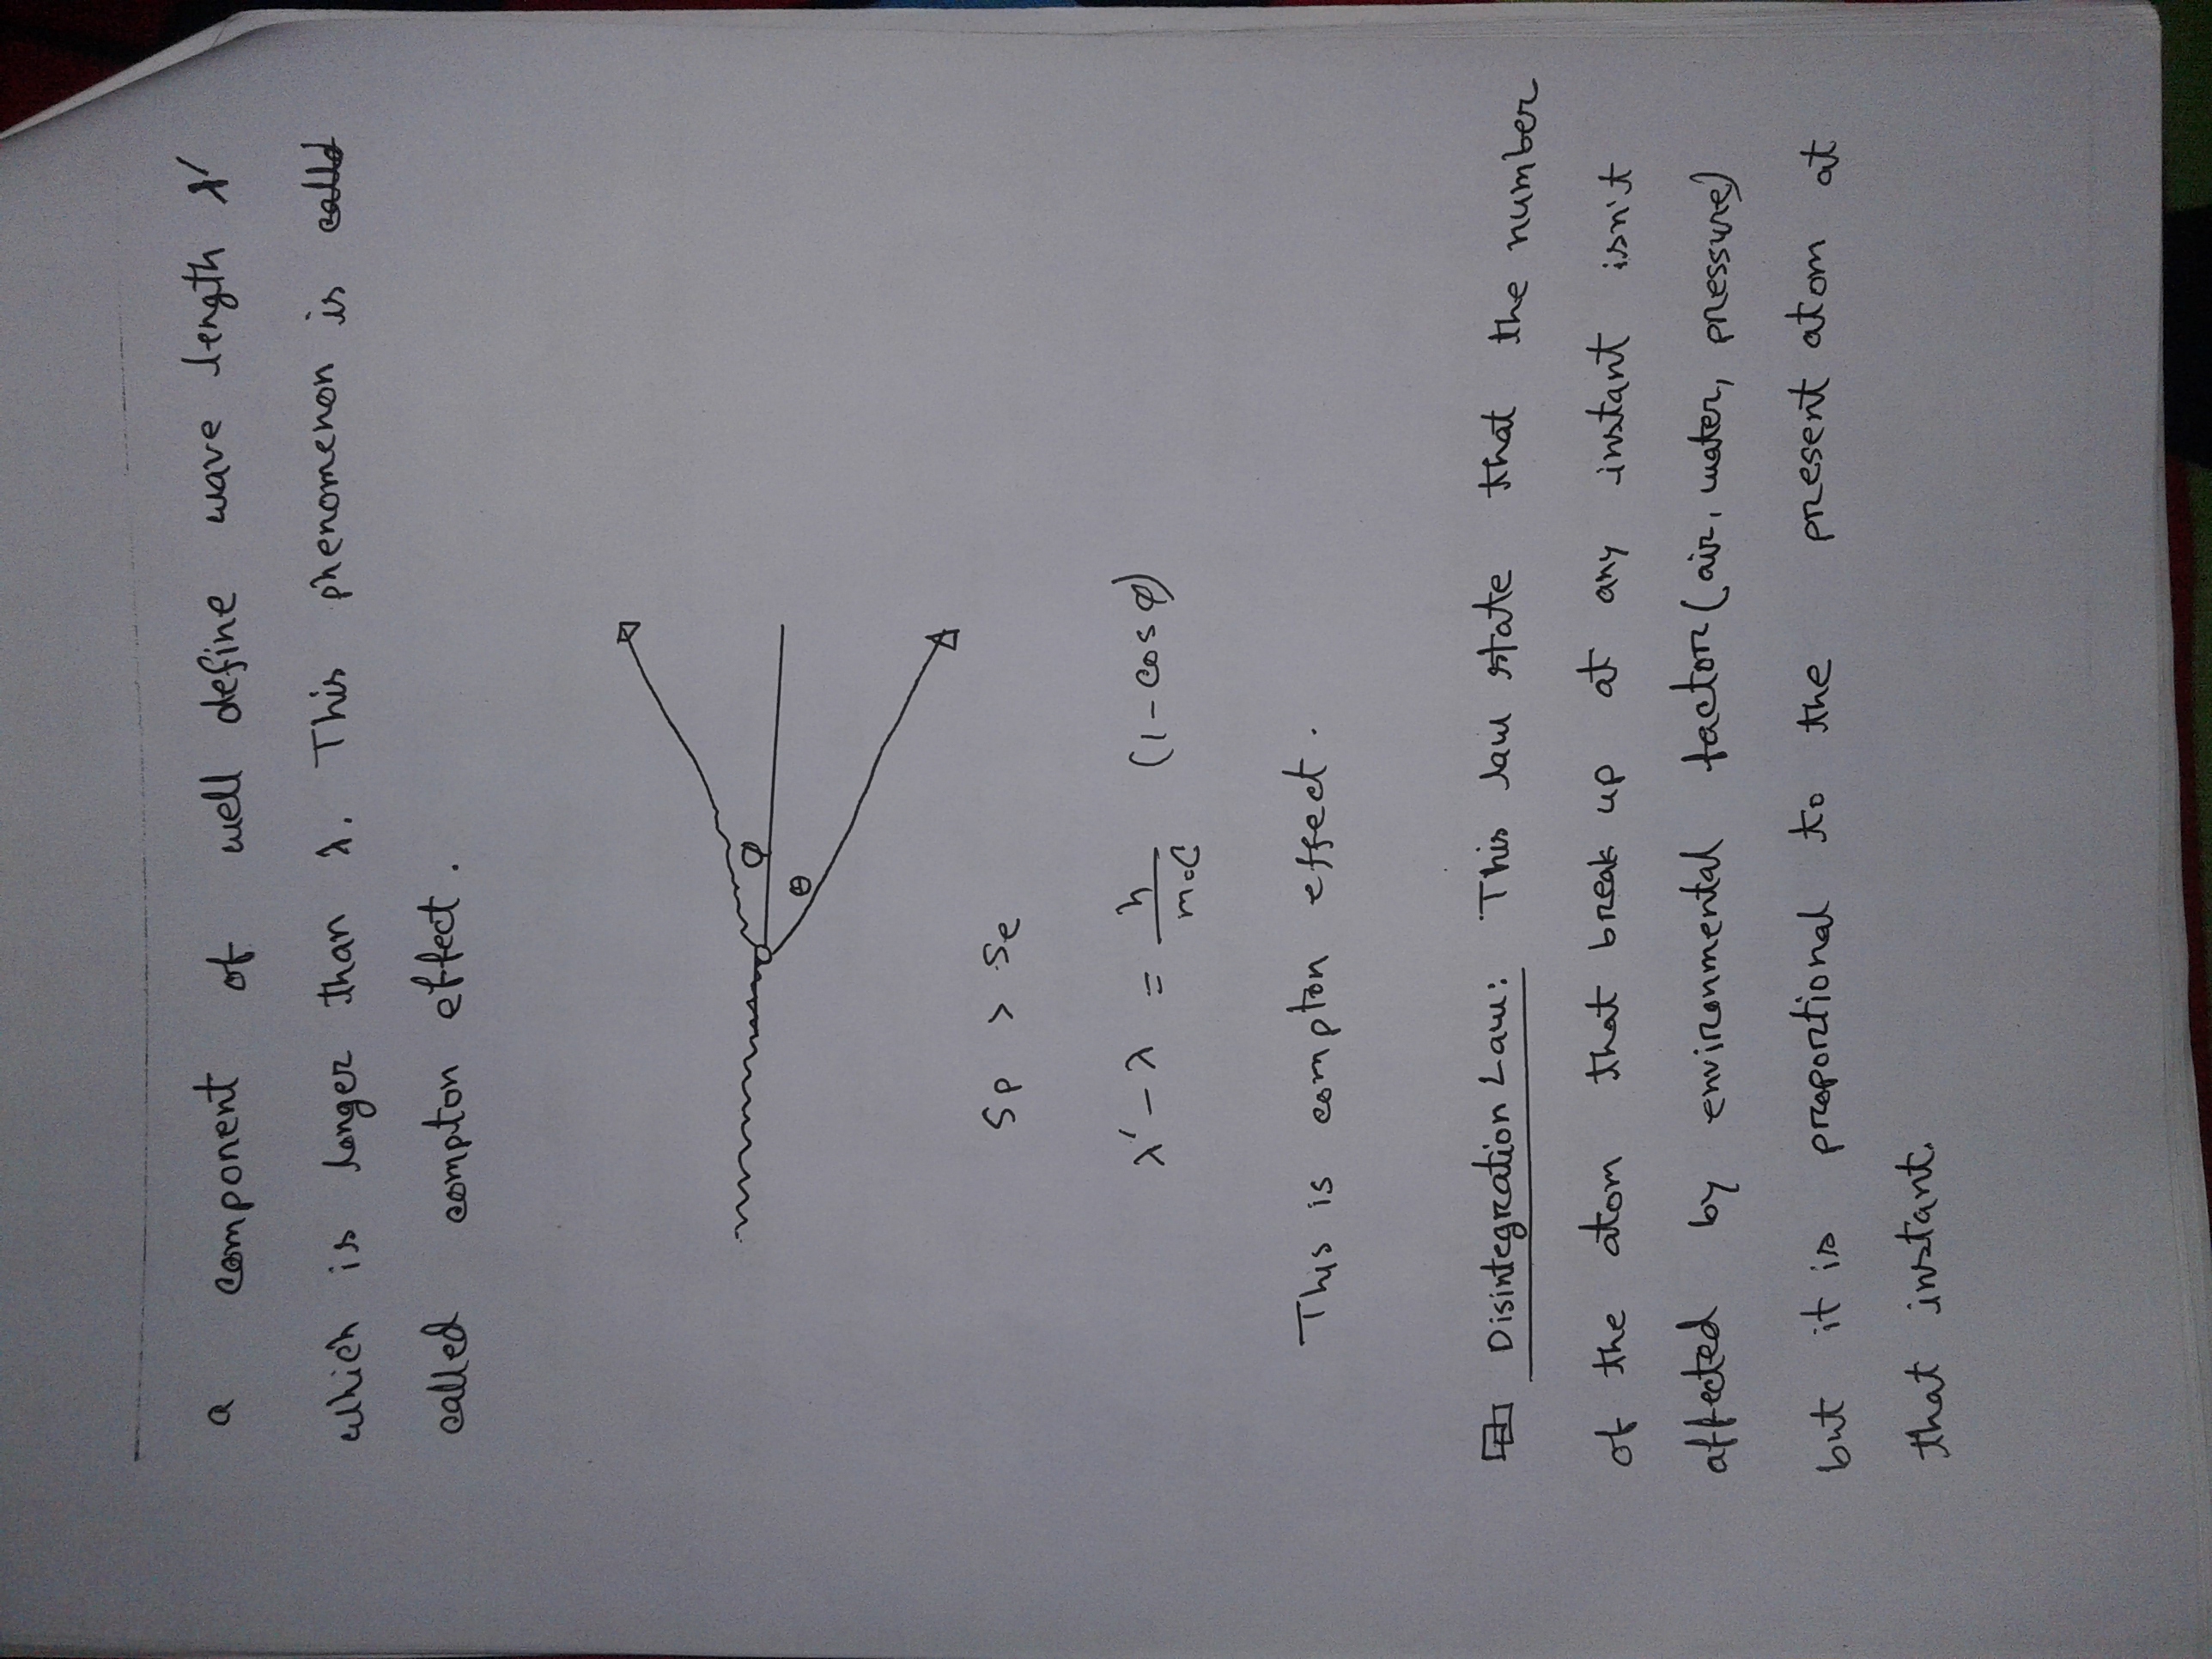 a component of well define wave length λ'
which is longer than λ. This phenomenon is calld
called compton effect.
φ
θ
Sp > Se
λ' - λ = h/m₀C (1 - cos φ)
This is compton effect.
Disintegration Law: This law state that the number
of the atom that break up at any instant isn't
affected by environmental factor (air, water, pressure)
but it is proportional to the present atom at
that instant.